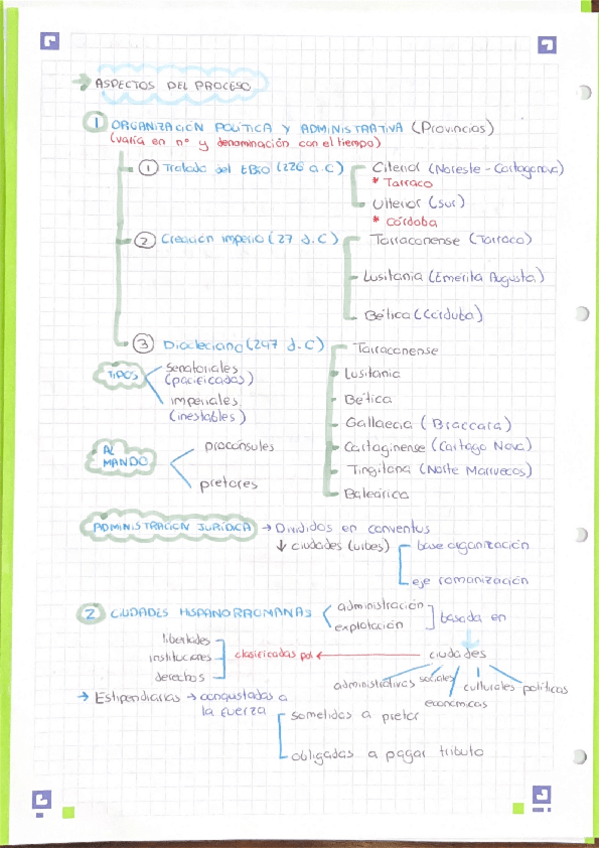 → ASPECTOS DEL PROCESO
1 ORGANIZACIÓN POLÍTICA Y ADMINISTRATIVA (Provincias)
(varía en nº y denominación con el tiempo)
1 Tratado del EBRO (226 a.C)
Citerior (Noreste - Cartagonova)
* Tarraco
Ulterior (sur)
* Córdoba
2 Creación imperio (27 d.C)
Tarraconense (Tarraco)
Lusitania (Emerita Augusta)
Bética (Corduba)
3 Diocleciano (297 d.C)
Tarraconense
Lusitania
Bética
Gallaecia (Braccara)
Cartaginense (Cartago Nova)
Tingitana (Norte Marruecos)
Baleárica
TIPOS
senatoriales
(pacificadas)
imperiales
(inestables)
AL MANDO
procónsules
pretores
ADMINISTRACIÓN JURÍDICA → Divididos en conventus
↓ ciudades (urbes)
base organización
eje romanización
2 CIUDADES HISPANORROMANAS
administración
explotación
basada en
ciudades
administrativas sociales económicas culturales políticas
clasificadas por
libertades
instituciones
derechos
→ Estipendiarias → conquistadas a
la fuerza
sometidas a pretor
obligadas a pagar tributo